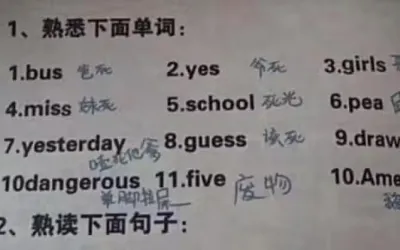 1、熟悉下面单词：
1.bus 爸死 2.yes 爷死 3.girls
4.miss 妹死 5.school 死光 6.pea
7.yesterday 8.guess 该死 9.draw
噎死他爹
10dangerous 11.five 废物 10.Ame
单脚拉屎
2、熟读下面句子：